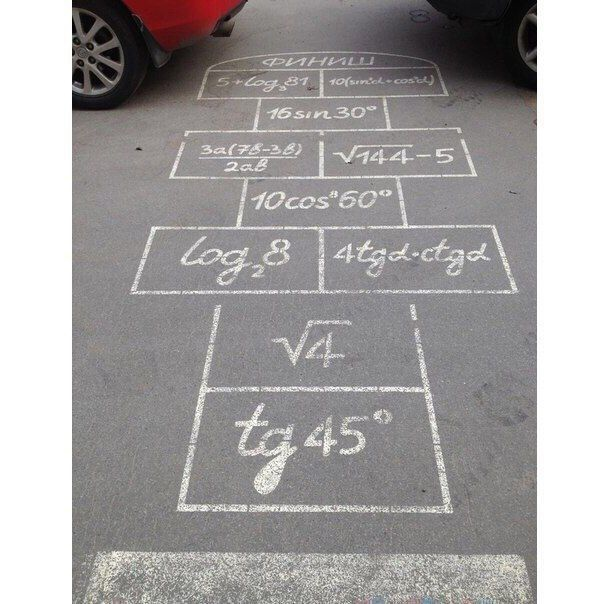 ФИНИШ
5+log₃81 10(sin²α+cos²α)
16sin30°
3a(7в-3в) √144-5
2aв
10cos60°
log₂8 4tgα·ctgα
√4
tg45°